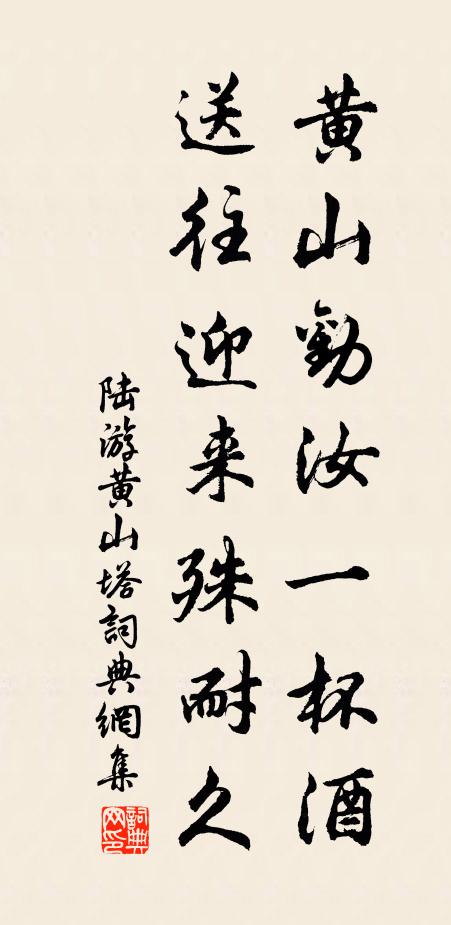 黄山勸汝一杯酒
送往迎来殊耐久
陆游黄山塔詞典網集
詞典网印